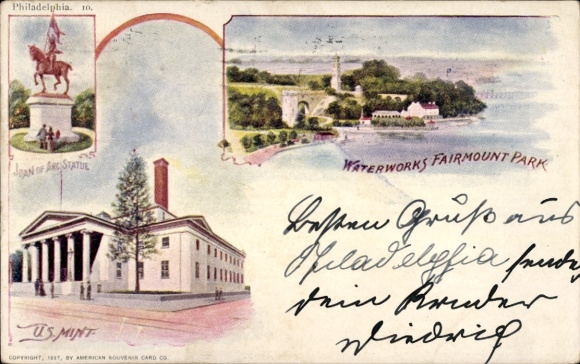 Philadelphia. 10.
JOAN OF ARC STATUE
WATERWORKS FAIRMOUNT PARK
Besten Gruß aus
Philadelphia sende
dein Bruder
Diedrich
U.S. MINT
COPYRIGHT, 1897, BY AMERICAN SOUVENIR CARD CO.